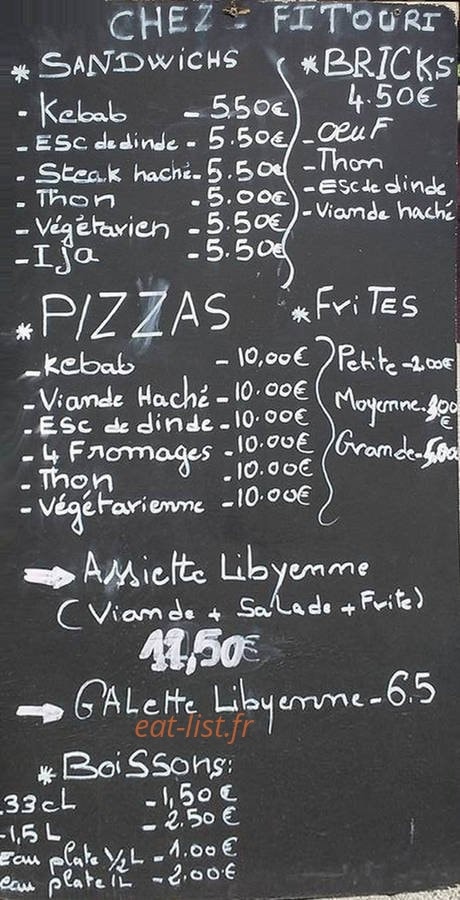 CHEZ - FITOURI
* SANDWICHS
- Kebab - 5.50€
- ESC de dinde - 5.50€
- Steak haché - 5.50€
- Thon - 5.00€
- Végétarien - 5.50€
- Ija - 5.50€
* BRICKS
4.50€
- oeuF
- Thon
- Esc de dinde
- Viande haché
* PIZZAS
- Kebab - 10,00€
- Viande Haché - 10.00€
- ESC de dinde - 10.00€
- 4 Fromages - 10.00€
- Thon - 10.00€
- Végétarienne - 10.00€
* FriTES
Petite - 2.00€
Moyenne - 3,00€
Grande -
→ Assiette Libyenne
(Viande + Salade + Frite)
11,50€
→ GALette Libyenne - 6.5
eat-list.fr
* BoiSSons:
33cL - 1,50€
- 1,5L - 2.50€
Eau plate ½L - 1.00€
eau plate 1L - 2,00€